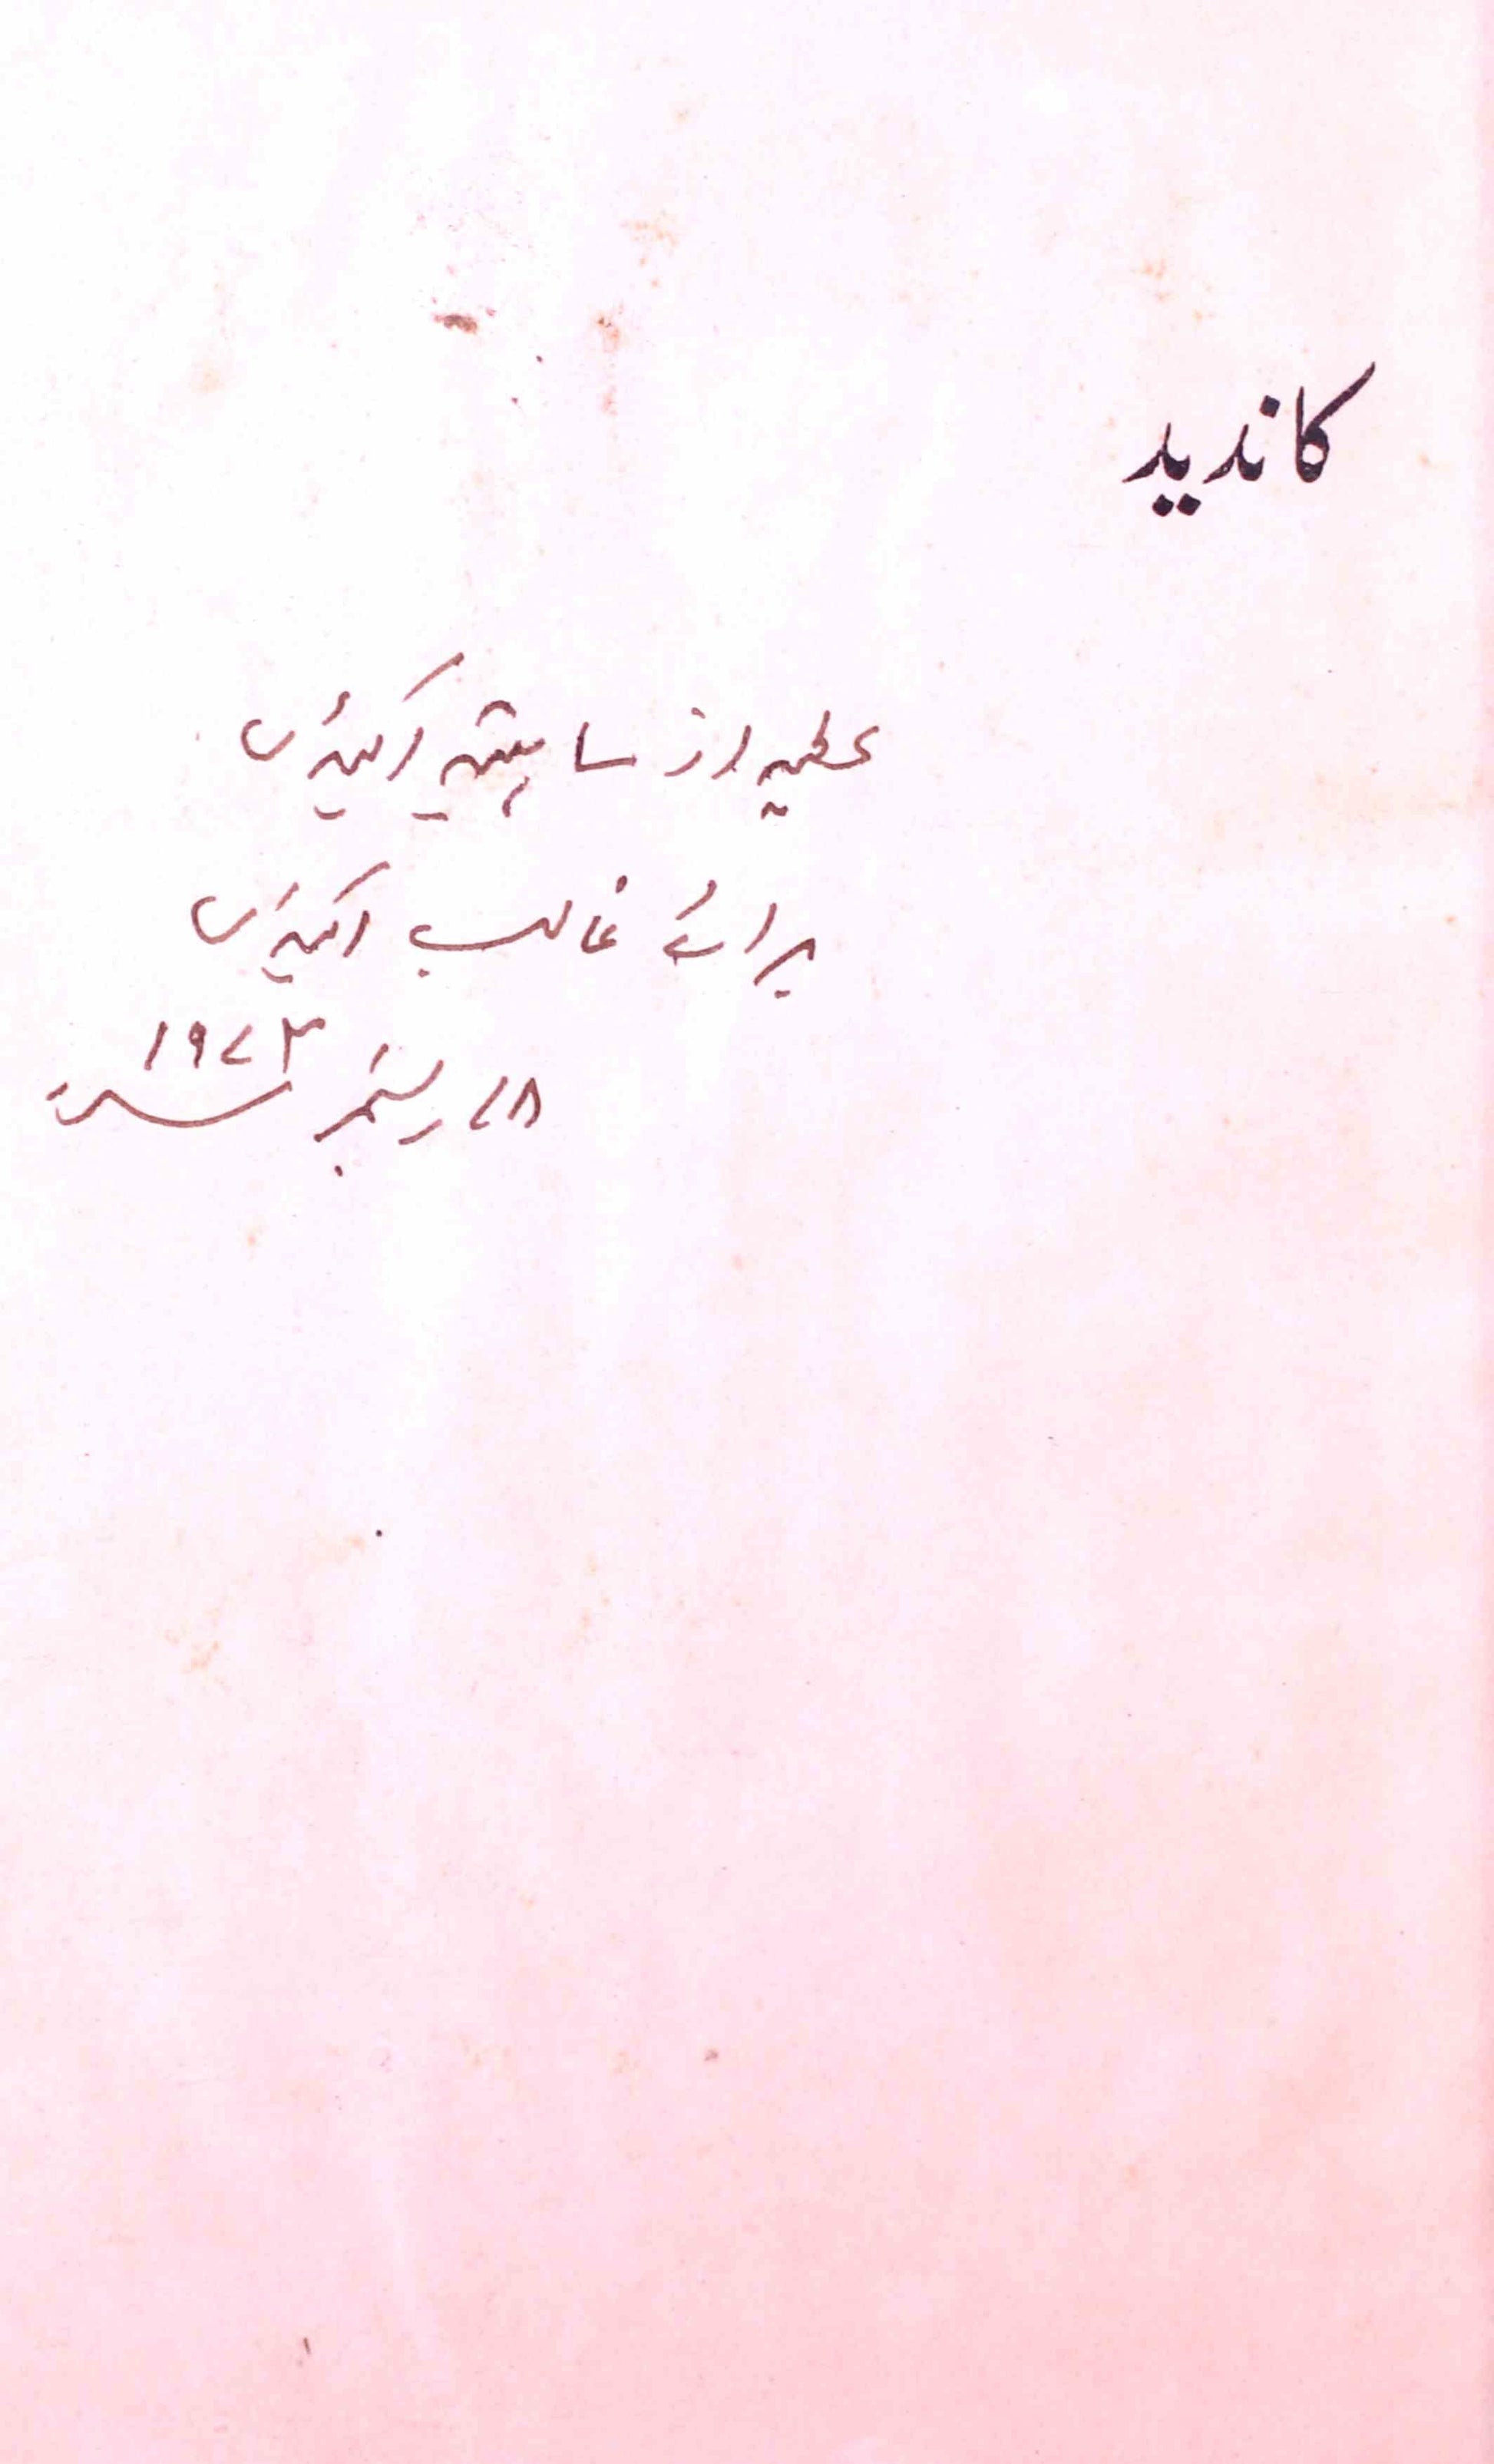 کاندید
عطیہ از ساہتیہ اکیڈمی
برائے غالب اکیڈمی
۱۸؍ دسمبر ۱۹۷۳ء